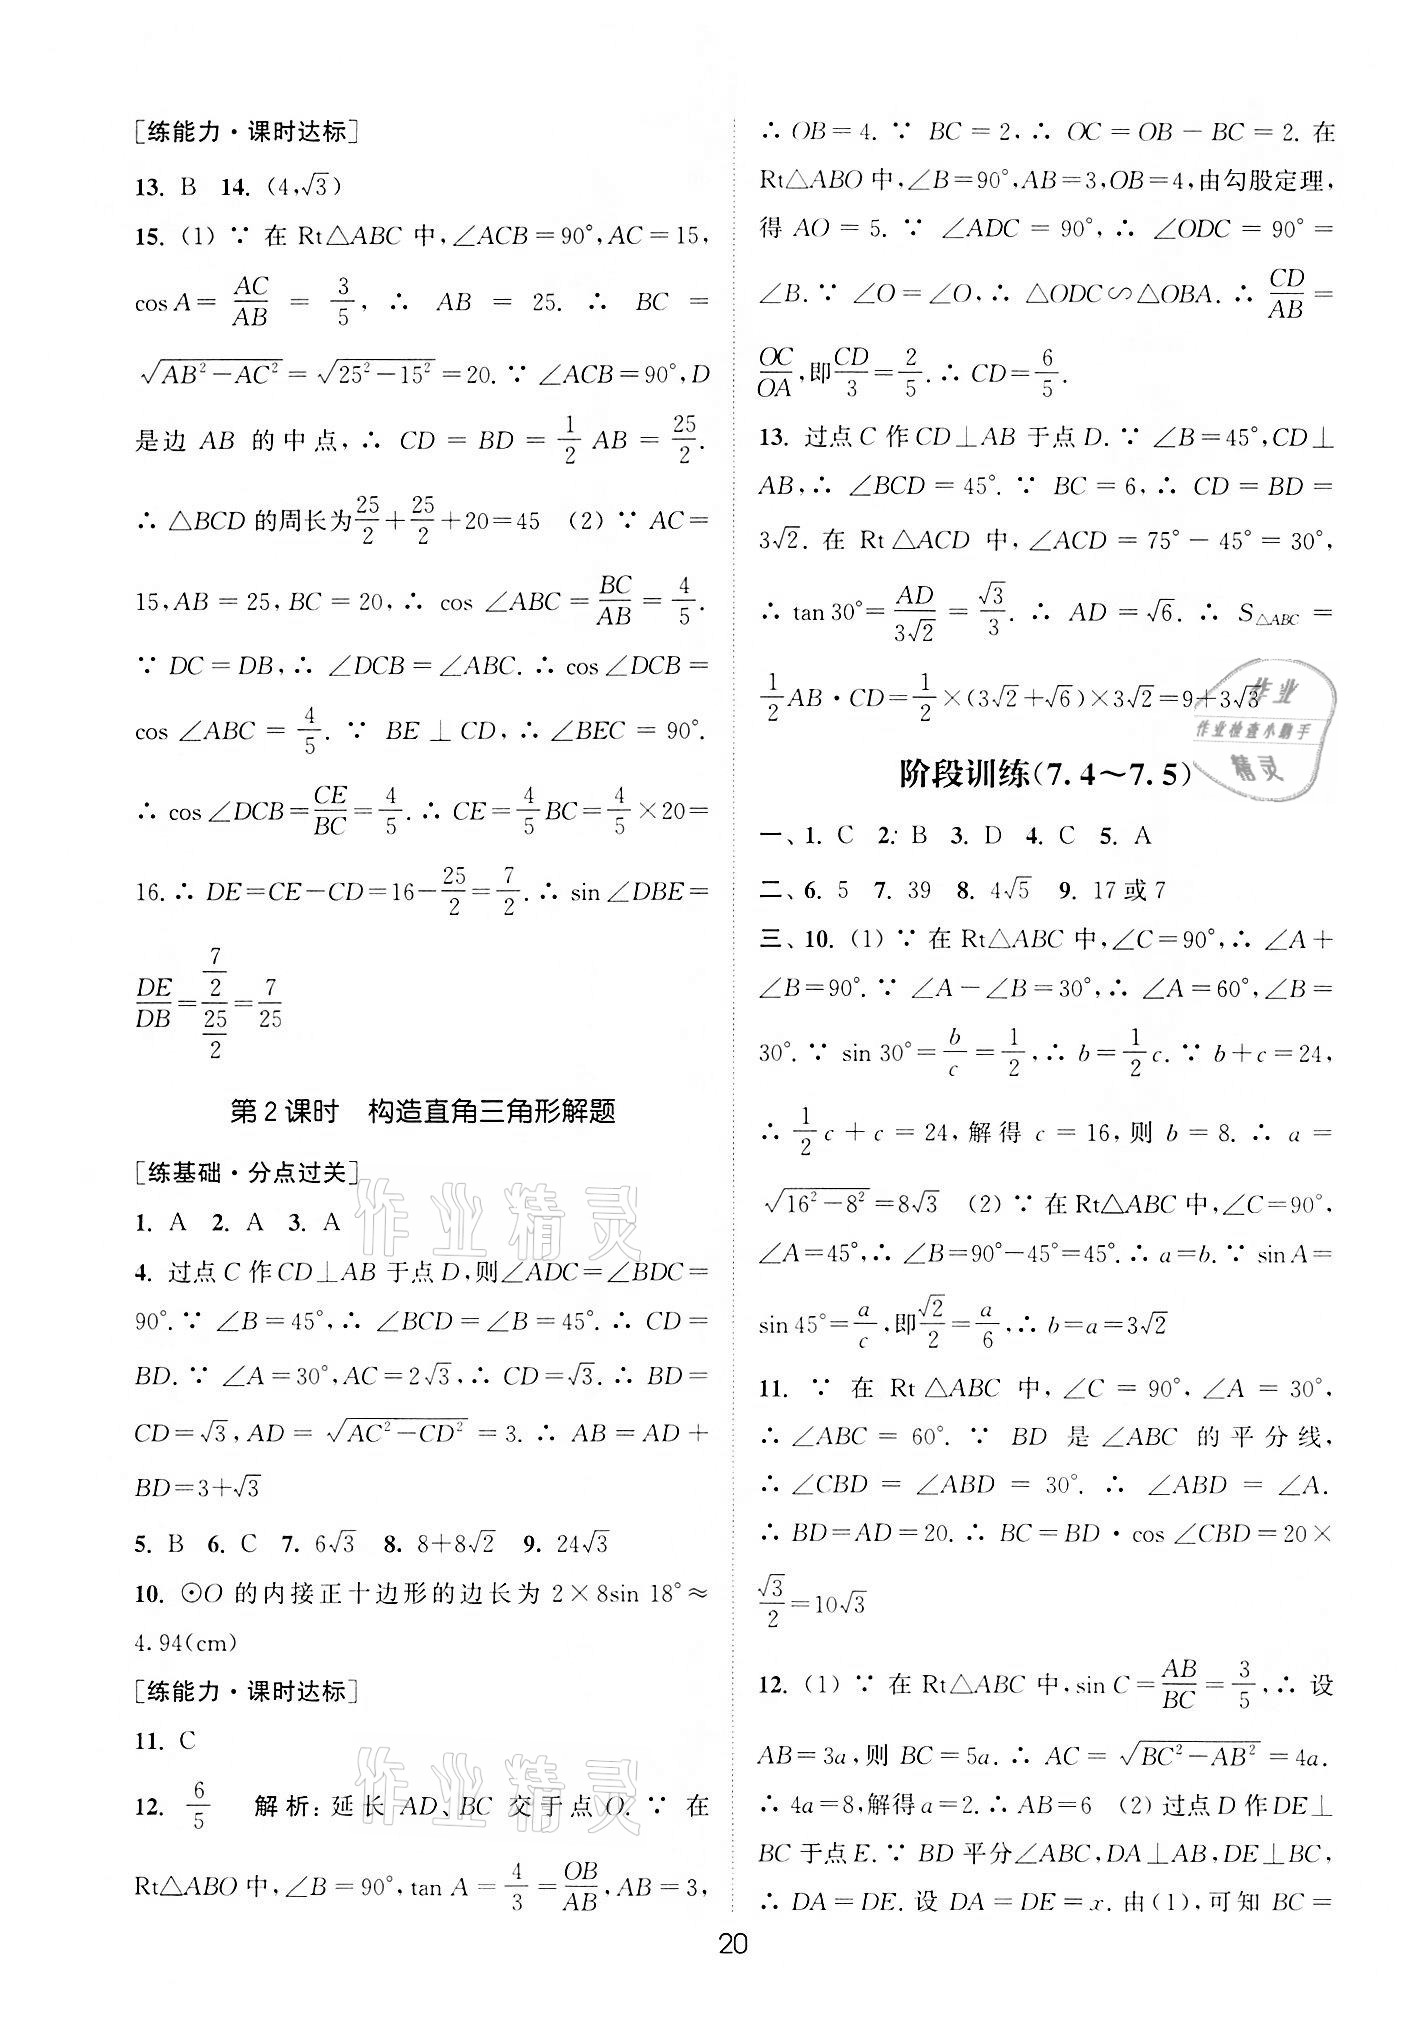 [练能力·课时达标]
13. B 14. (4,√3)
15. (1) ∵ 在 Rt△ABC 中,∠ACB=90°,AC=15,
cosA= AC/AB = 3/5, ∴ AB = 25. ∴ BC =
√(AB²-AC²)=√(25²-15²)=20. ∵ ∠ACB=90°,D
是边 AB 的中点, ∴ CD = BD = 1/2 AB = 25/2.
∴ △BCD 的周长为25/2+25/2+20=45 (2) ∵ AC=
15,AB=25,BC=20,∴ cos ∠ABC=BC/AB=4/5.
∵ DC=DB,∴ ∠DCB=∠ABC. ∴ cos ∠DCB=
cos ∠ABC = 4/5. ∵ BE ⊥ CD, ∴ ∠BEC = 90°.
∴ cos∠DCB=CE/BC=4/5. ∴ CE=4/5BC=4/5×20=
16. ∴ DE=CE-CD=16-25/2=7/2. ∴ sin∠DBE=
DE/DB=(7/2)/(25/2)=7/25
第2课时 构造直角三角形解题
[练基础·分点过关]
1. A 2. A 3. A
4. 过点C作CD⊥AB于点D,则∠ADC=∠BDC=
90°. ∵ ∠B=45°,∴ ∠BCD=∠B=45°. ∴ CD=
BD. ∵ ∠A=30°,AC=2√3,∴ CD=√3. ∴ BD=
CD=√3,AD= √(AC²-CD²) =3. ∴ AB=AD+
BD=3+√3
5. B 6. C 7. 6√3 8. 8+8√2 9. 24√3
10. ⊙O 的内接正十边形的边长为 2×8sin 18°≈
4.94(cm)
[练能力·课时达标]
11. C
12. 6/5 解析:延长 AD、BC 交于点 O. ∵ 在
Rt△ABO中,∠B=90°,tan A=4/3=OB/AB,AB=3,
∴ OB=4. ∵ BC=2,∴ OC=OB-BC=2. 在
Rt△ABO中,∠B=90°,AB=3,OB=4,由勾股定理,
得 AO=5. ∵ ∠ADC=90°,∴ ∠ODC=90°=
∠B. ∵ ∠O=∠O,∴ △ODC∽△OBA. ∴ CD/AB=
OC/OA,即CD/3=2/5. ∴ CD=6/5.
13. 过点C作CD⊥AB于点D. ∵ ∠B=45°,CD⊥
AB,∴ ∠BCD=45°. ∵ BC=6,∴ CD=BD=
3√2. 在 Rt△ACD 中,∠ACD=75°-45°=30°,
∴ tan30°=AD/3√2=√3/3. ∴ AD=√6. ∴ S△ABC=
1/2AB·CD=1/2×(3√2+√6)×3√2=9+3√3
作业
作业检查小助手
精灵
阶段训练(7.4～7.5)
一、1. C 2. B 3. D 4. C 5. A
二、6. 5 7. 39 8. 4√5 9. 17或7
三、10. (1) ∵ 在Rt△ABC中,∠C=90°,∴ ∠A+
∠B=90°. ∵ ∠A-∠B=30°,∴ ∠A=60°,∠B=
30°. ∵ sin30°=b/c=1/2,∴ b=1/2c. ∵ b+c=24,
∴ 1/2c+c=24,解得 c=16,则 b=8. ∴ a=
√(16²-8²)=8√3 (2) ∵ 在Rt△ABC中,∠C=90°,
∠A=45°,∴ ∠B=90°-45°=45°. ∴ a=b. ∵ sinA=
sin45°=a/c,即√2/2=a/6,∴ b=a=3√2
11. ∵ 在 Rt△ABC 中,∠C=90°,∠A=30°,
∴ ∠ABC = 60°. ∵ BD 是 ∠ABC 的平分线,
∴ ∠CBD = ∠ABD = 30°. ∴ ∠ABD = ∠A.
∴ BD=AD=20. ∴ BC=BD·cos∠CBD=20×
√3/2=10√3
12. (1) ∵ 在 Rt△ABC 中,sin C=AB/BC=3/5,∴ 设
AB=3a,则 BC=5a. ∴ AC=√(BC²-AB²)=4a.
∴ 4a=8,解得a=2. ∴ AB=6 (2) 过点D作DE⊥
BC于点E. ∵ BD平分∠ABC,DA⊥AB,DE⊥BC,
∴ DA=DE. 设 DA=DE=x. 由(1),可知 BC=
20
作业精灵
作业精灵